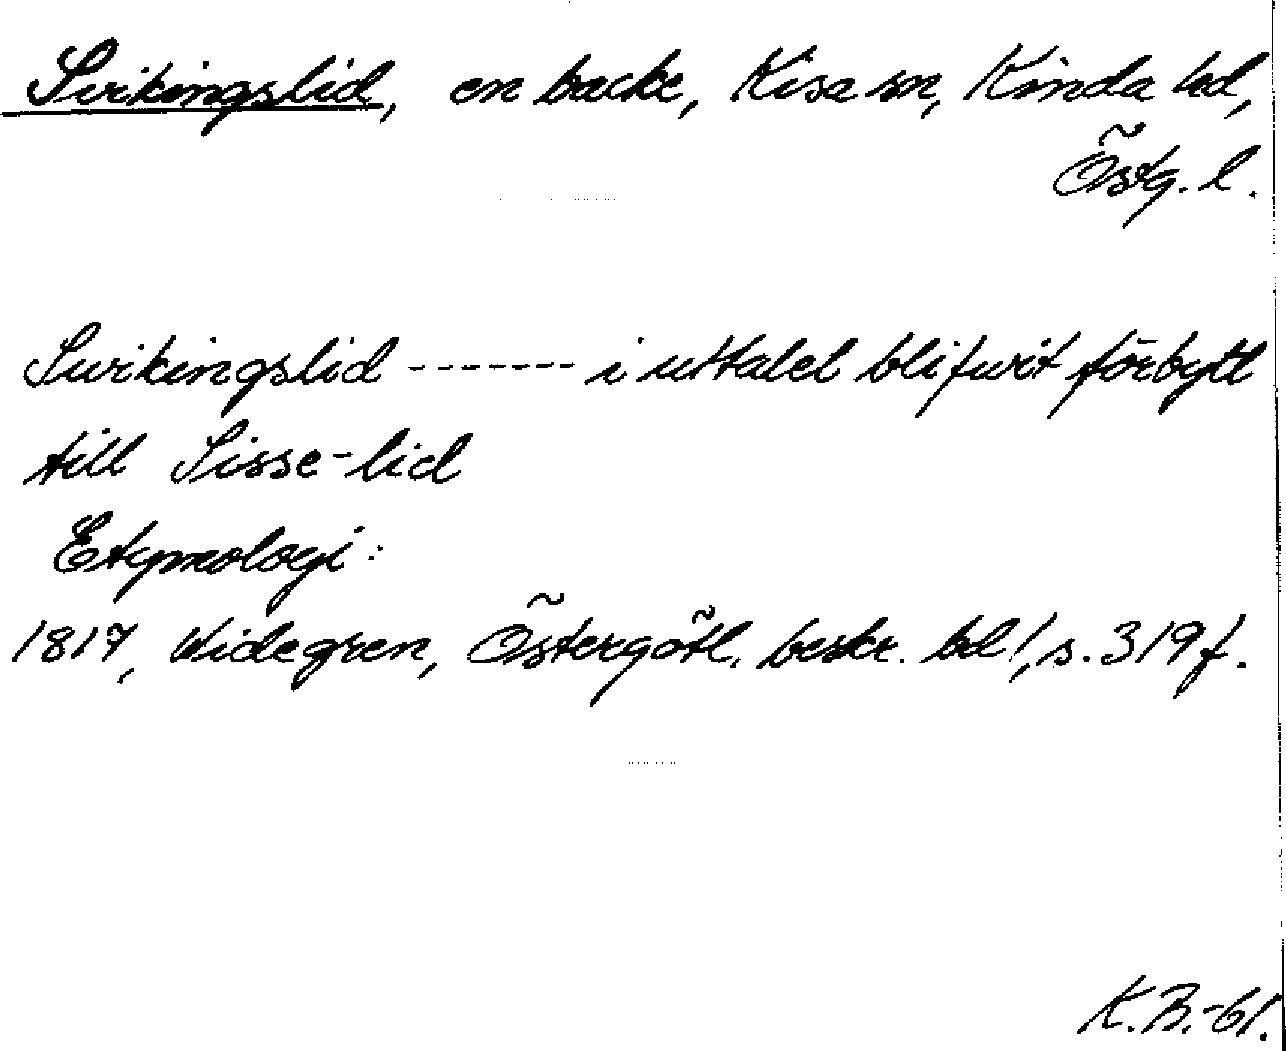 Svikingslid, en backe, Kisa sn, Kinda hd,
Östg. l.
Swikingslid ------- i uttalet blifwit förbytt
till Sisse-lid
Etymologi:
1817, Widegren, Östergötl. beskr. bd 1, s. 319 f.
K.B.-61.